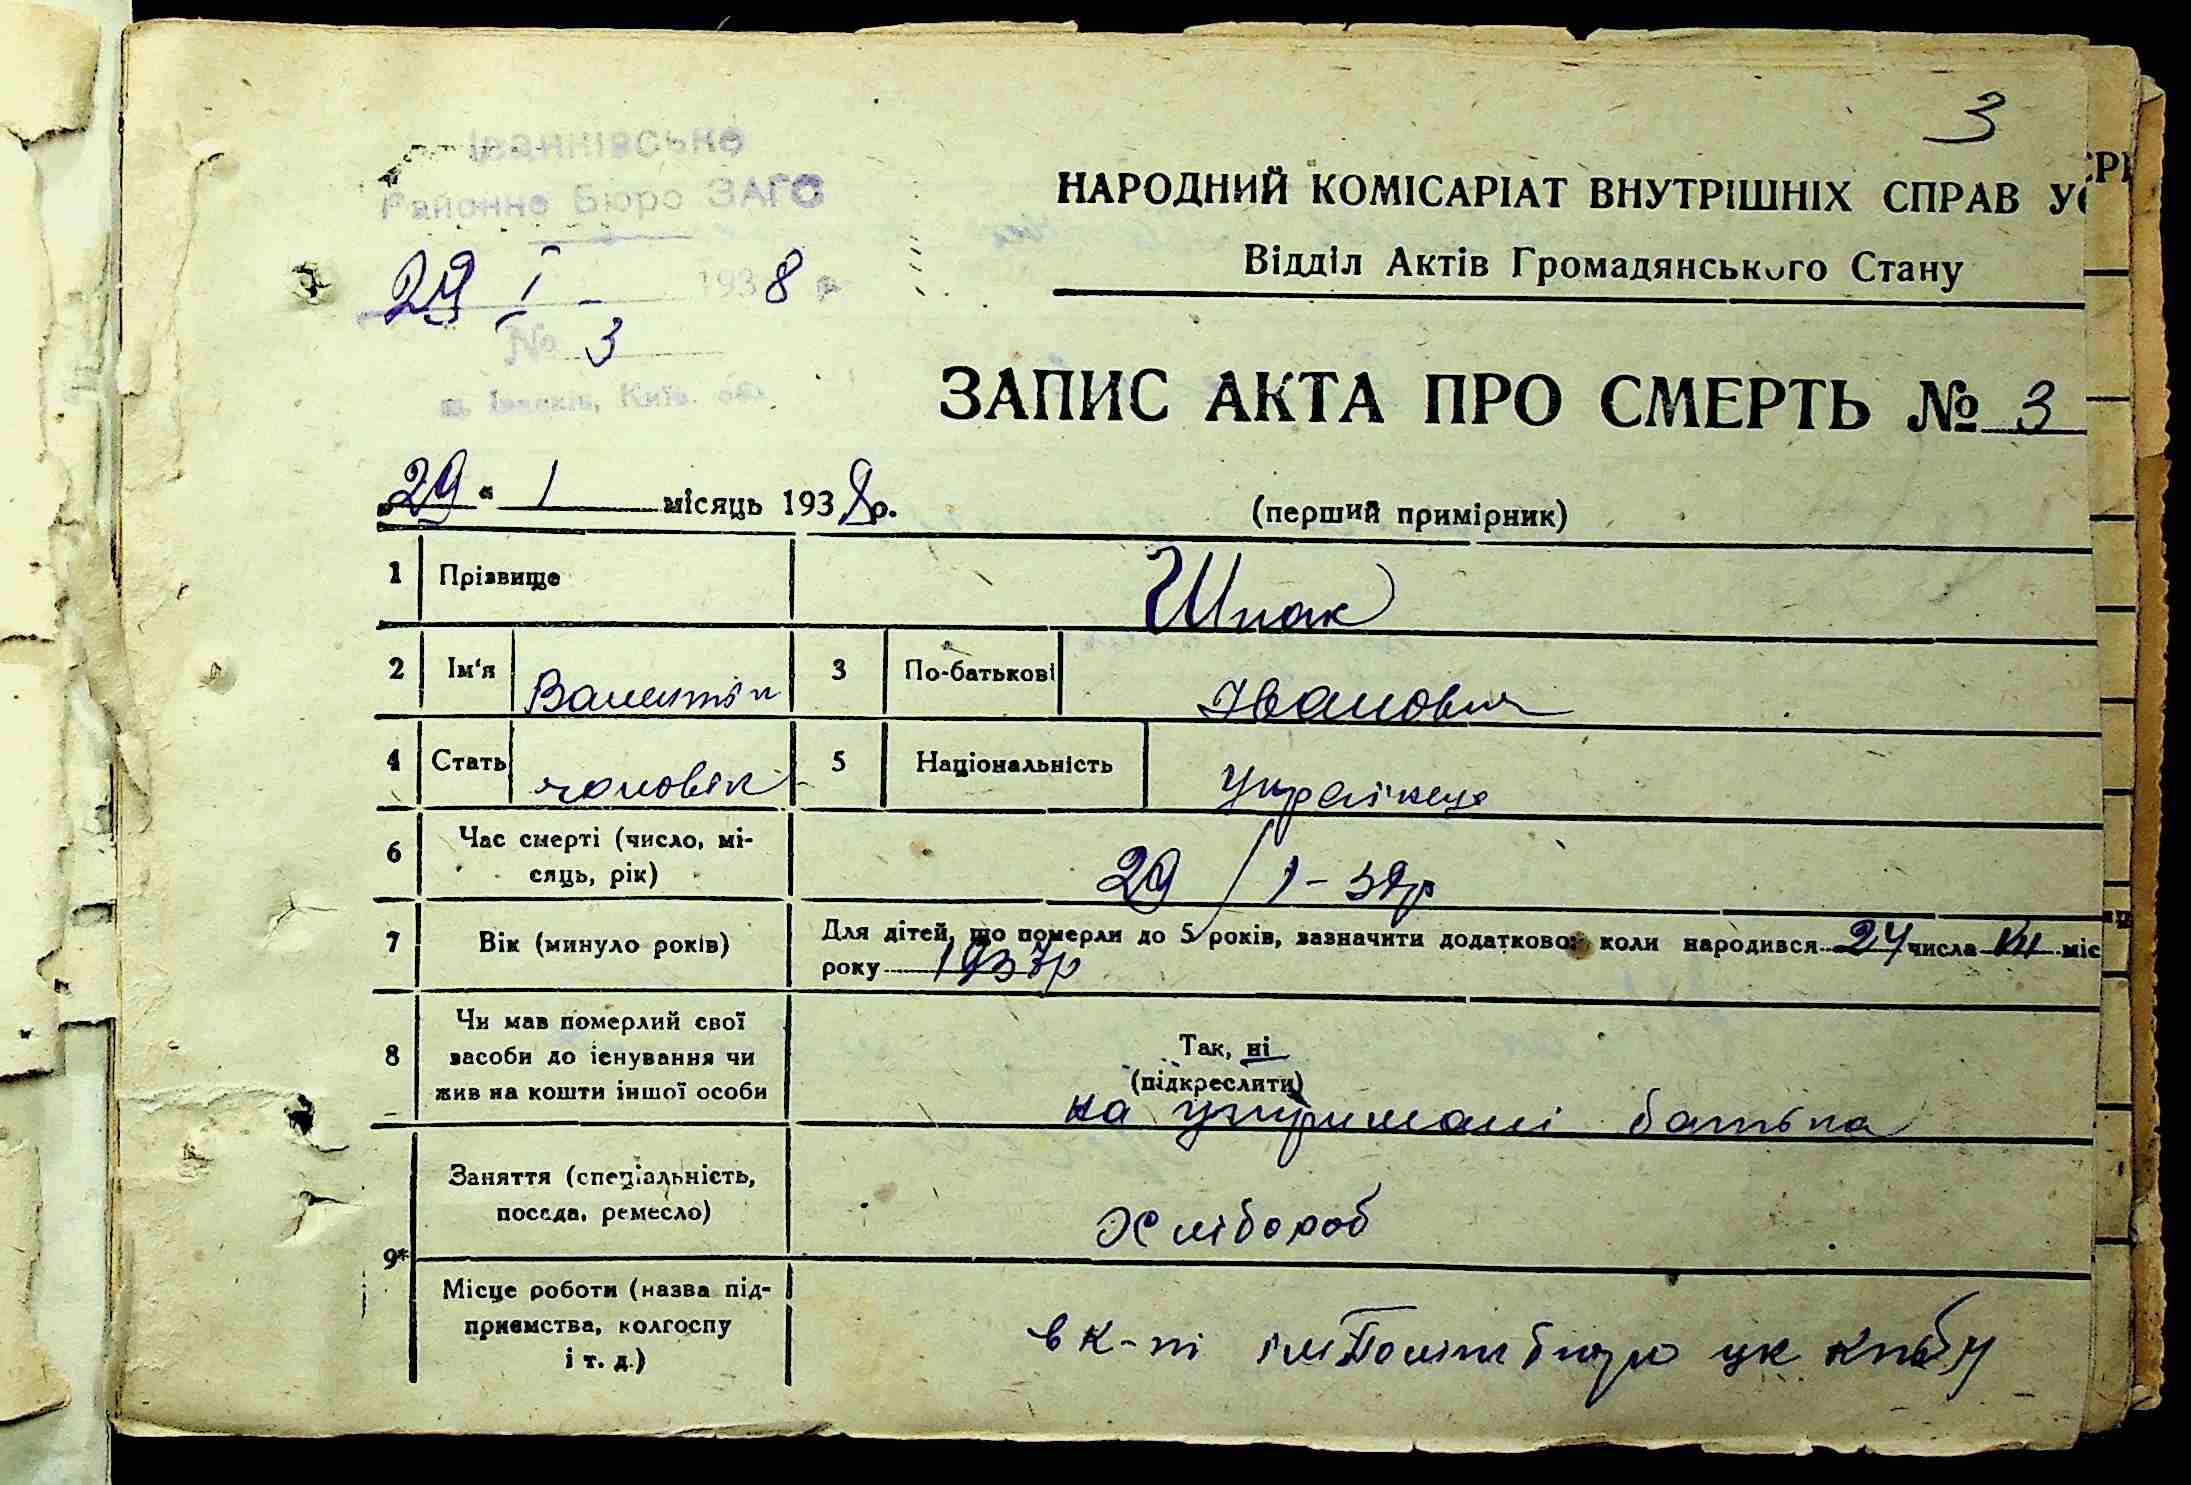 3
Іванківське
Районне Бюро ЗАГС
29 I - 1938 р.
№ 3
м. Іванків, Київ. обл.
НАРОДНИЙ КОМІСАРІАТ ВНУТРІШНІХ СПРАВ УС
Відділ Актів Громадянського Стану
ЗАПИС АКТА ПРО СМЕРТЬ № 3
„29“ 1 місяць 1938 р.
(перший примірник)
1 Прізвище Шпак
2 Ім'я Валентін 3 По-батькові Іванович
4 Стать чоловік 5 Національність Українець
6 Час смерті (число, мі-
сяць, рік) 29/1-38р
7 Вік (минуло років) Для дітей, що померли до 5 років, зазначити додатково: коли народився 24 числа VII міс
року 1937р
8 Чи мав померлий свої
засоби до існування чи
жив на кошти іншої особи
Так, ні
(підкреслити)
на утримані батька
9* Заняття (спеціальність,
посада, ремесло) Хлібороб
Місце роботи (назва під-
приємства, колгоспу
і т. д.) в к-пі ім Політбюро цк кпбу